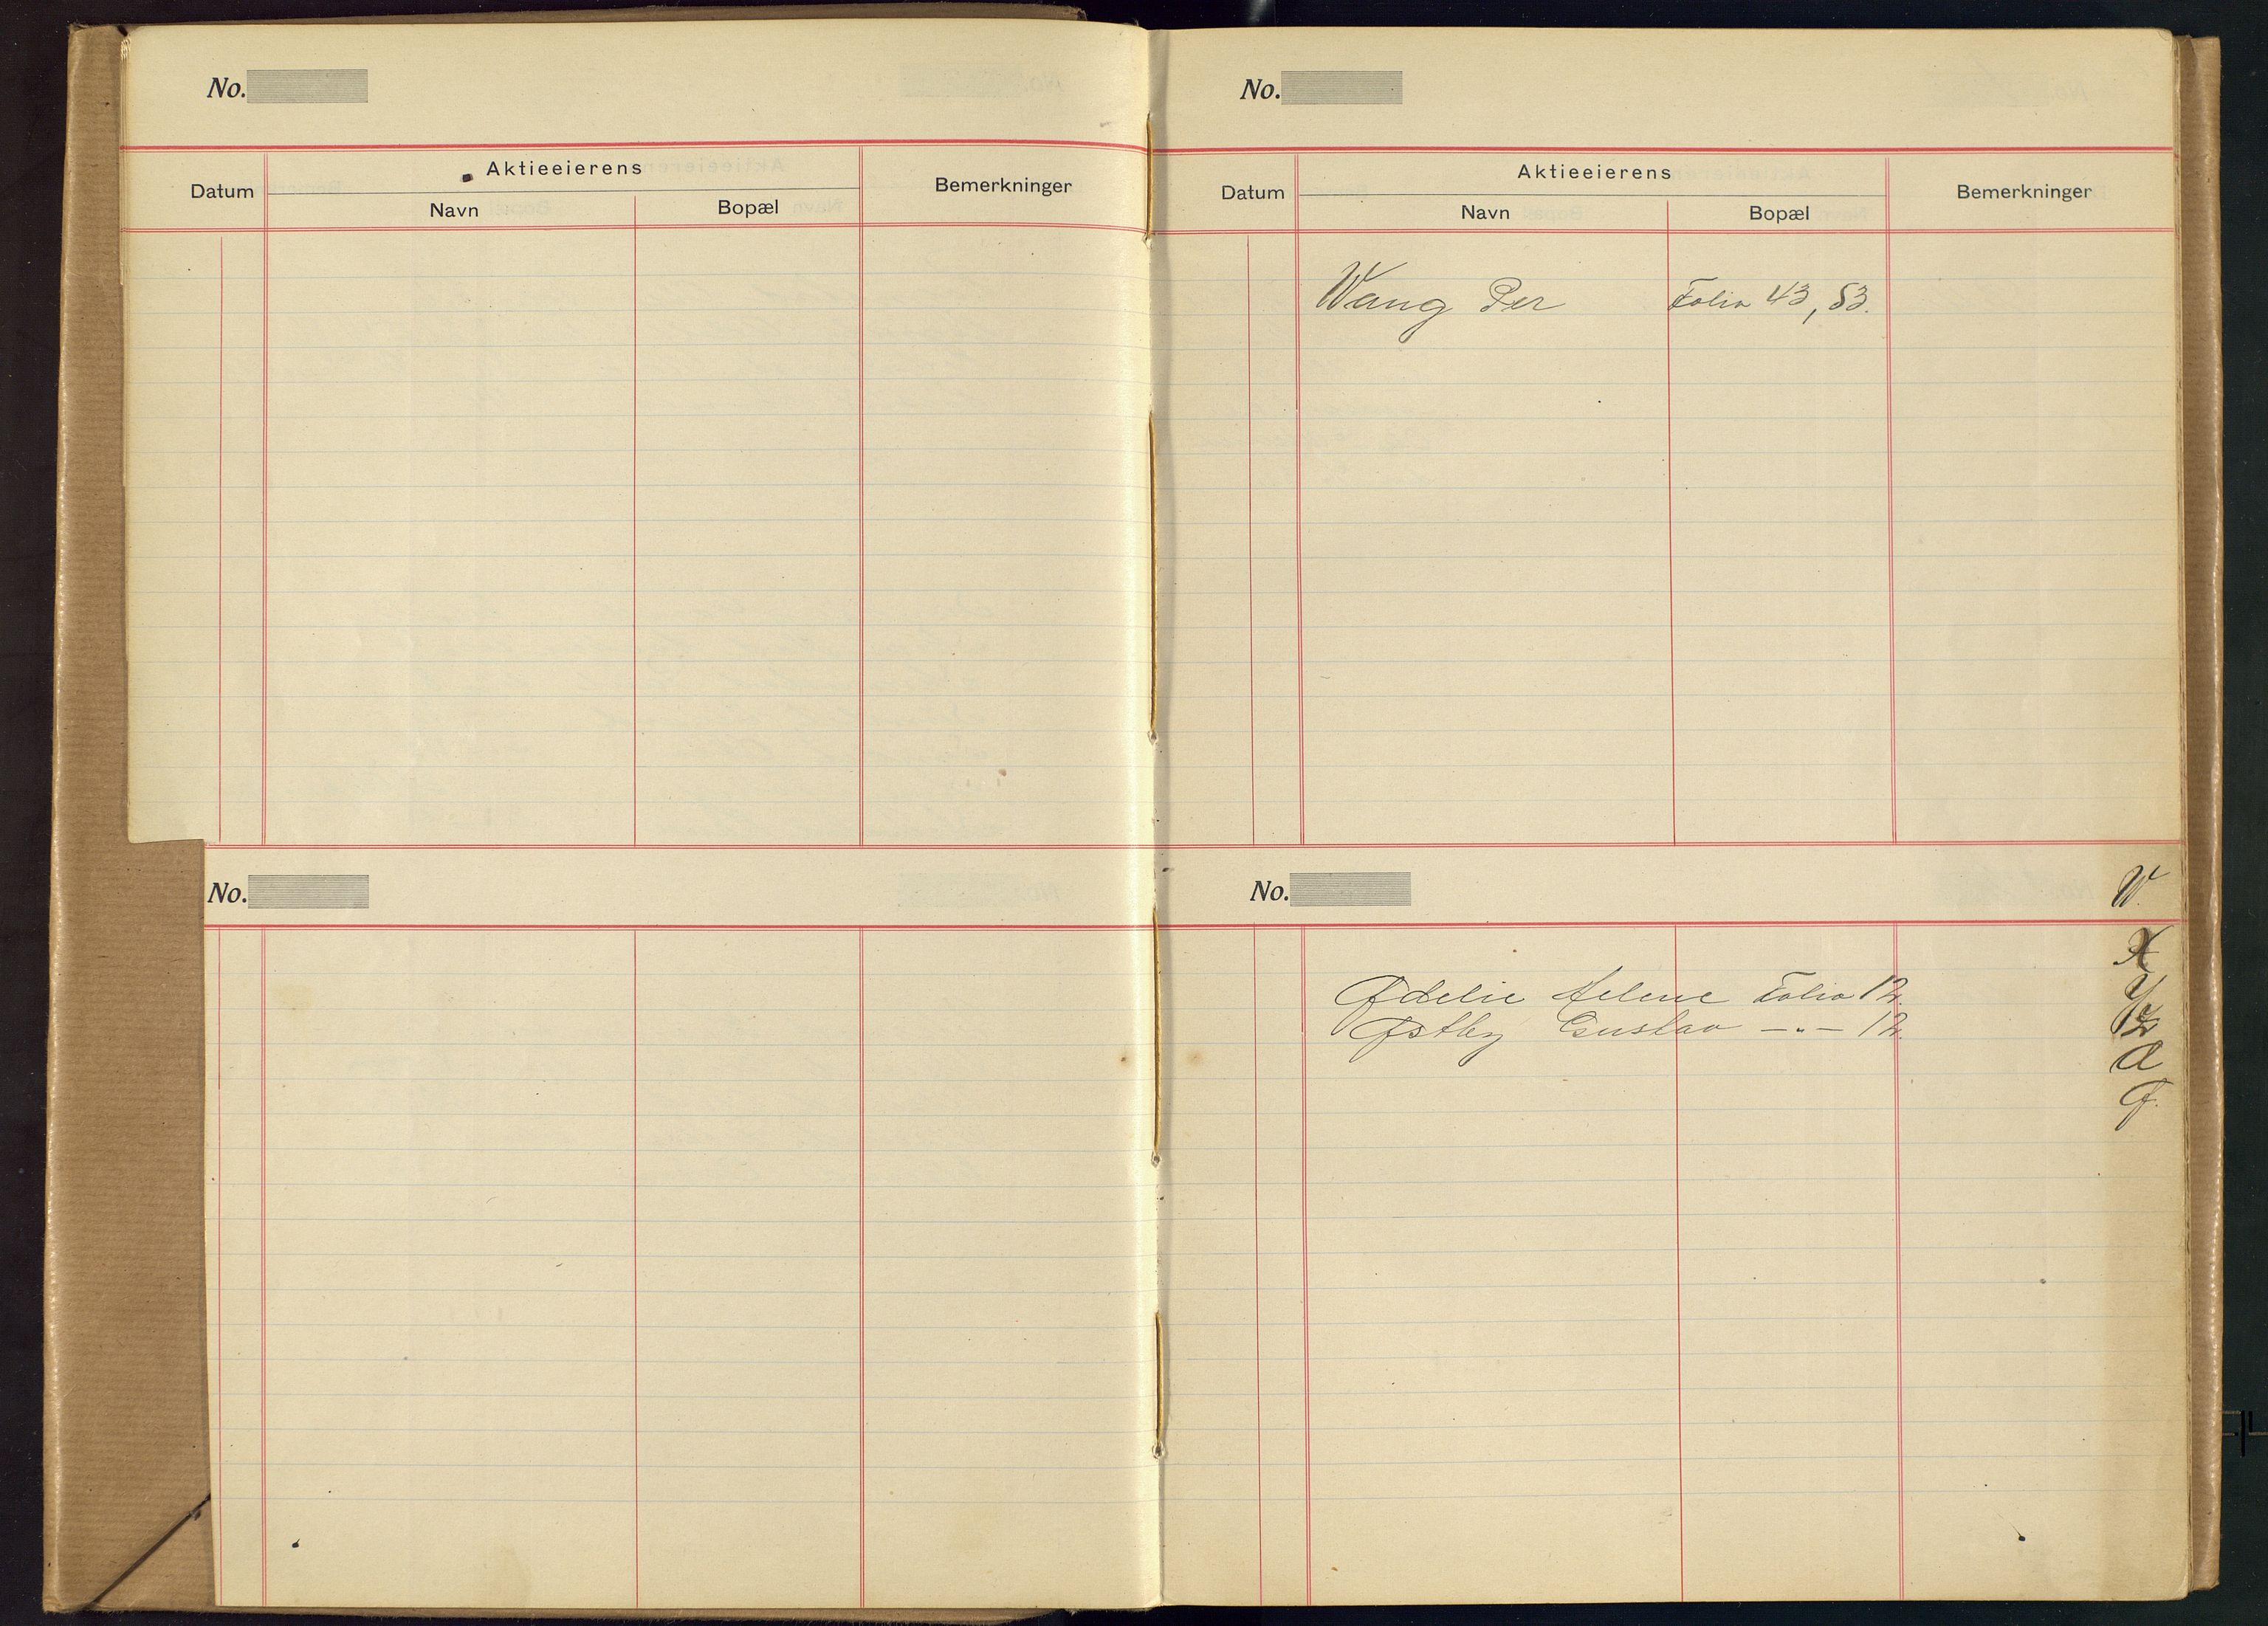 No.
Datum Aktieeierens Bemerkninger
Navn Bopæl
No.
No.
Datum Aktieeierens Bemerkninger
Navn Bopæl
Wang Per Folio 43, 53.
No.
W.
X
Y
Z
Ødelie Helene Folio 12.
Østby Gustav — " — 12.
Ø.